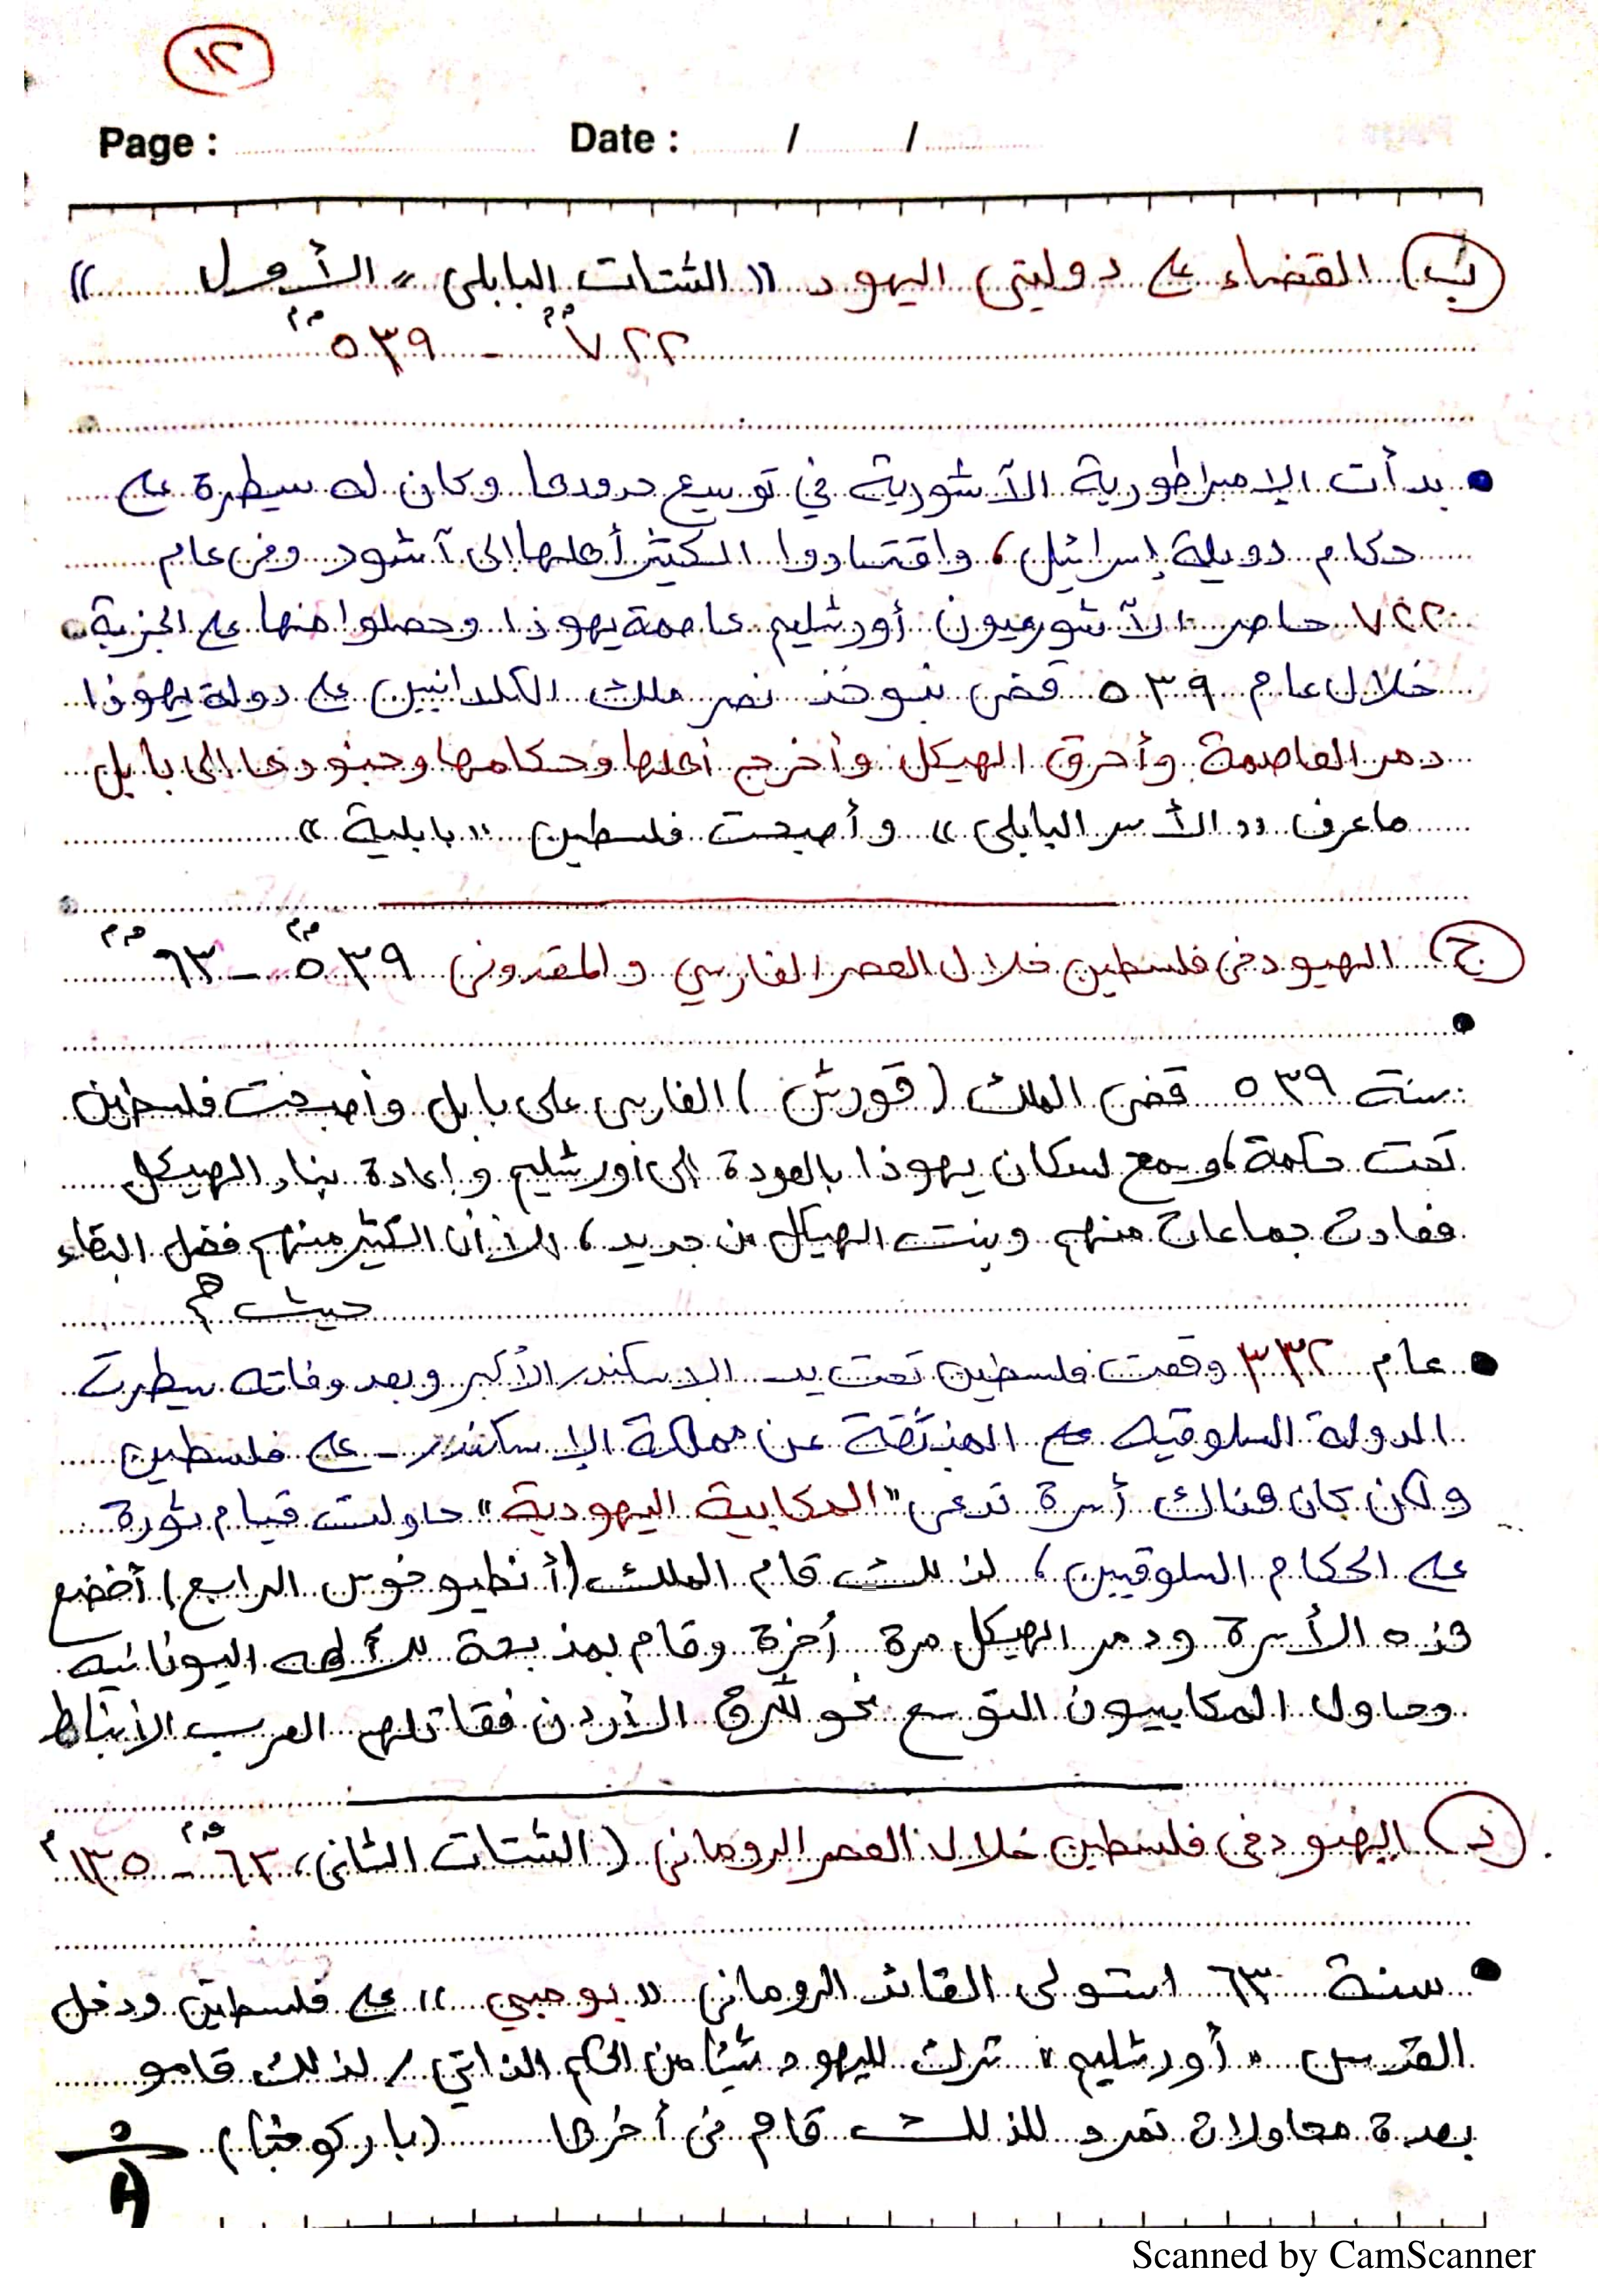 ١٢
Page : Date : / /
ب) القضاء على دوليتي اليهود "الشتات البابلي" الأول"
٧٢٢ ق.م - ٥٣٩ ق.م
• بدأت الإمبراطورية الآشورية في توسيع حدودها وكان له سيطرة على
حكام دويلة إسرائيل، واقتادوا الكثير أهلها إلى آشور وفي عام
٧٢٢ حاصر الآشوريون أورشليم عاصمة يهوذا وحصلوا منها على الجزية.
خلال عام ٥٣٩ قضى نبوخذ نصر ملك الكلدانيين على دولة يهوذا
دمر العاصمة وأحرق الهيكل وأخرج أهلها وحكامها وجنودها إلى بابل
ما عرف "الأسر البابلي" وأصبحت فلسطين "بابلية"
ج) اليهود في فلسطين خلال العصر الفارسي والمقدوني ٥٣٩ ق.م - ٦٣ ق.م
•
سنة ٥٣٩ قضى الملك (قورش) الفارسي على بابل وأصبحت فلسطين
تحت حكمة، وسمح لسكان يهوذا بالعودة إلى أورشليم وإعادة بناء الهيكل
فعادت جماعات منهم وبنت الهيكل من جديد، إلا أن الكثير منهم فضل البقاء
حيث هم
• عام ٣٣٢ وقعت فلسطين تحت يد الإسكندر الأكبر وبعد وفاته سيطرت
الدولة السلوقيه المنبثقة عن مملكة الإسكندر - على فلسطين
ولكن كان هناك أسرة تدعى "المكابية اليهودية" حاولت قيام ثورة
على الحكام السلوقيين، لذلك قام الملك (أنطيوخوس الرابع) أخضع
هذه الأسرة ودمر الهيكل مرة أخرة وقام بمذبحة للألهه اليونانيه
وحاول المكابيون التوسع نحو شرق الأردن فقاتلهم العرب الأنباط
د) اليهود في فلسطين خلال العصر الروماني (الشتات الثاني) ٦٣ ق.م - ١٣٥م
• سنة ٦٣ استولى القائد الروماني "بومبي" على فلسطين ودخل
القدس "أورشليم" ترك لليهود شيئا من الحكم الذاتي / لذلك قامو
بعدة محاولات تمرد للذلك قام في أخرها (باركوخبا)
Scanned by CamScanner